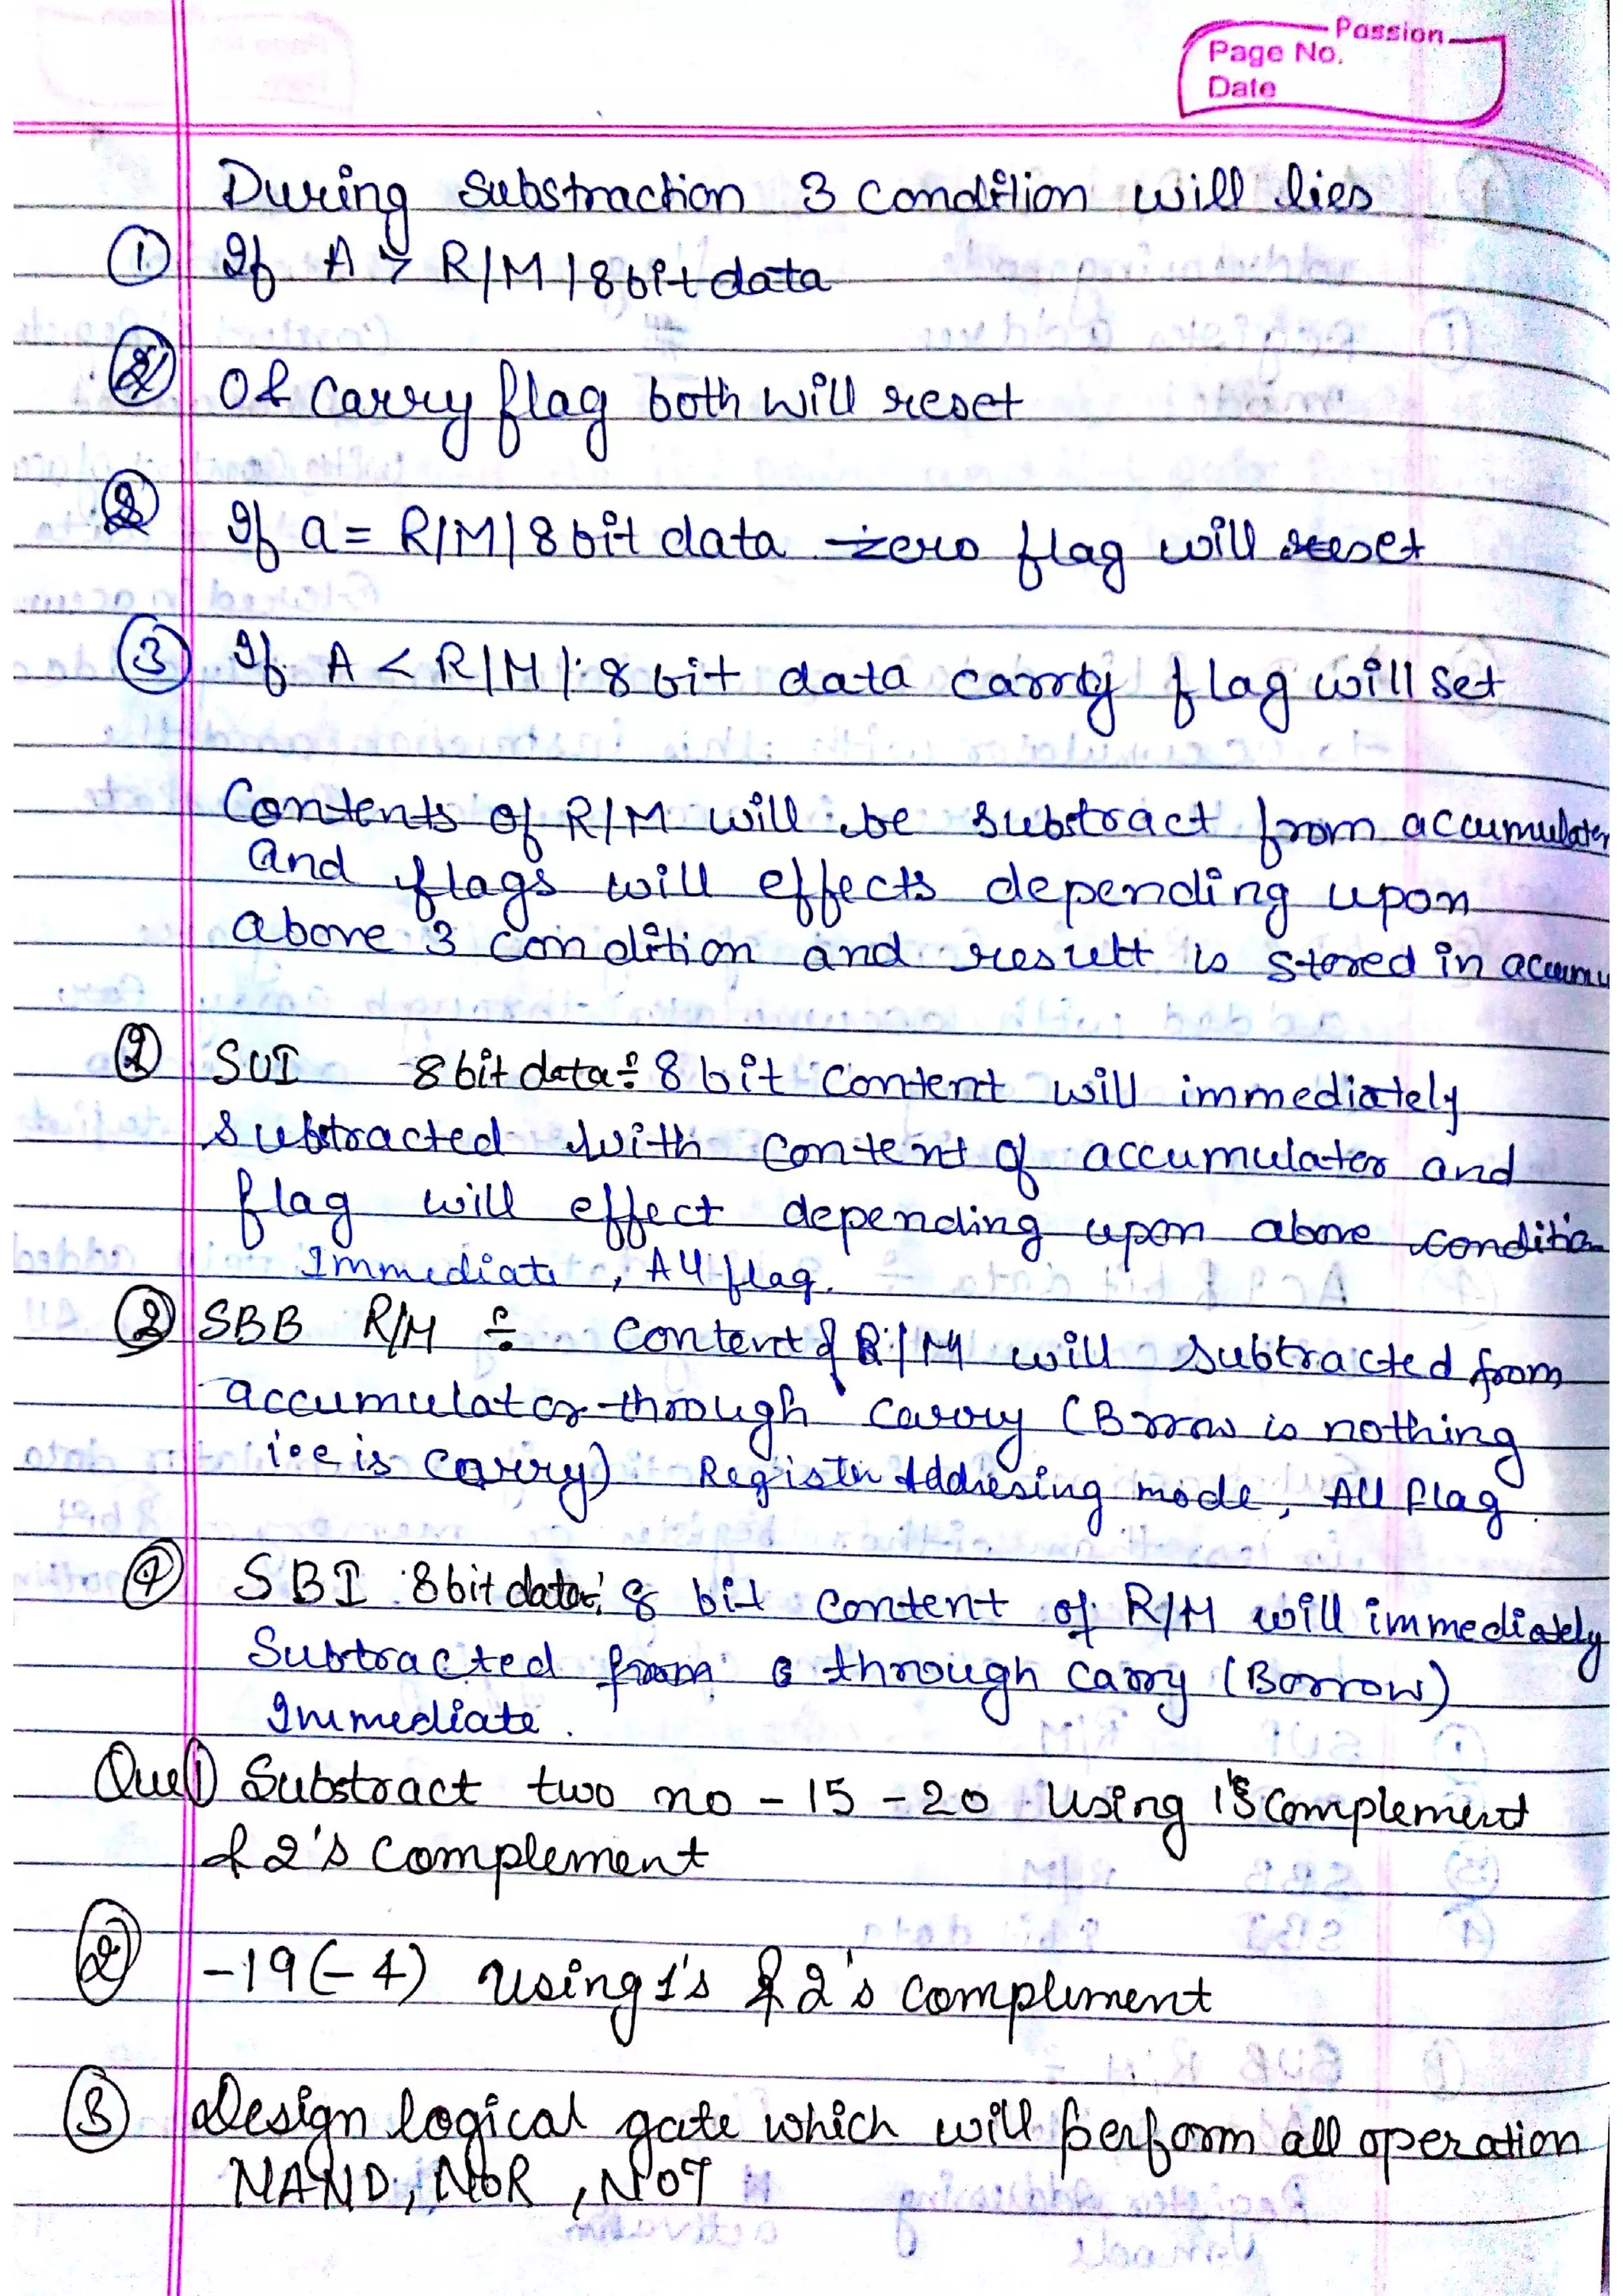 Passion
Page No.
Date
During Substraction 3 Condition will lies
① If A > R/M/8bit data
② 0 & Carry flag both will reset
② If a = R/M/8 bit data zero flag will reset
③ If A < R/M/8 bit data carry flag will set
Contents of R/M will be Substract from accumulater
and flags will effects depending upon
above 3 condition and result is stored in accumu
② SUI 8bit data÷ 8 bit content will immediately
Subtracted with content of accumulator and
flag will effect depending upon above condition
Immediate, All flag.
③ SBB R/M ÷ Content of R/M will subtracted from
accumulator through Carry (Borrow is nothing
i.e is Carry) Register Addresing mode, All flag
④ SBI 8bit data: 8 bit content of R/M will immediately
Subtracted from through Carry (Borrow)
Immediate.
Que 1) Substract two no - 15 - 20 Using 1's complement
& 2's complement
② -19(-4) Using 1's & 2's complement
③ Design logical gate which will perform all operation
NAND, NOR, NOT